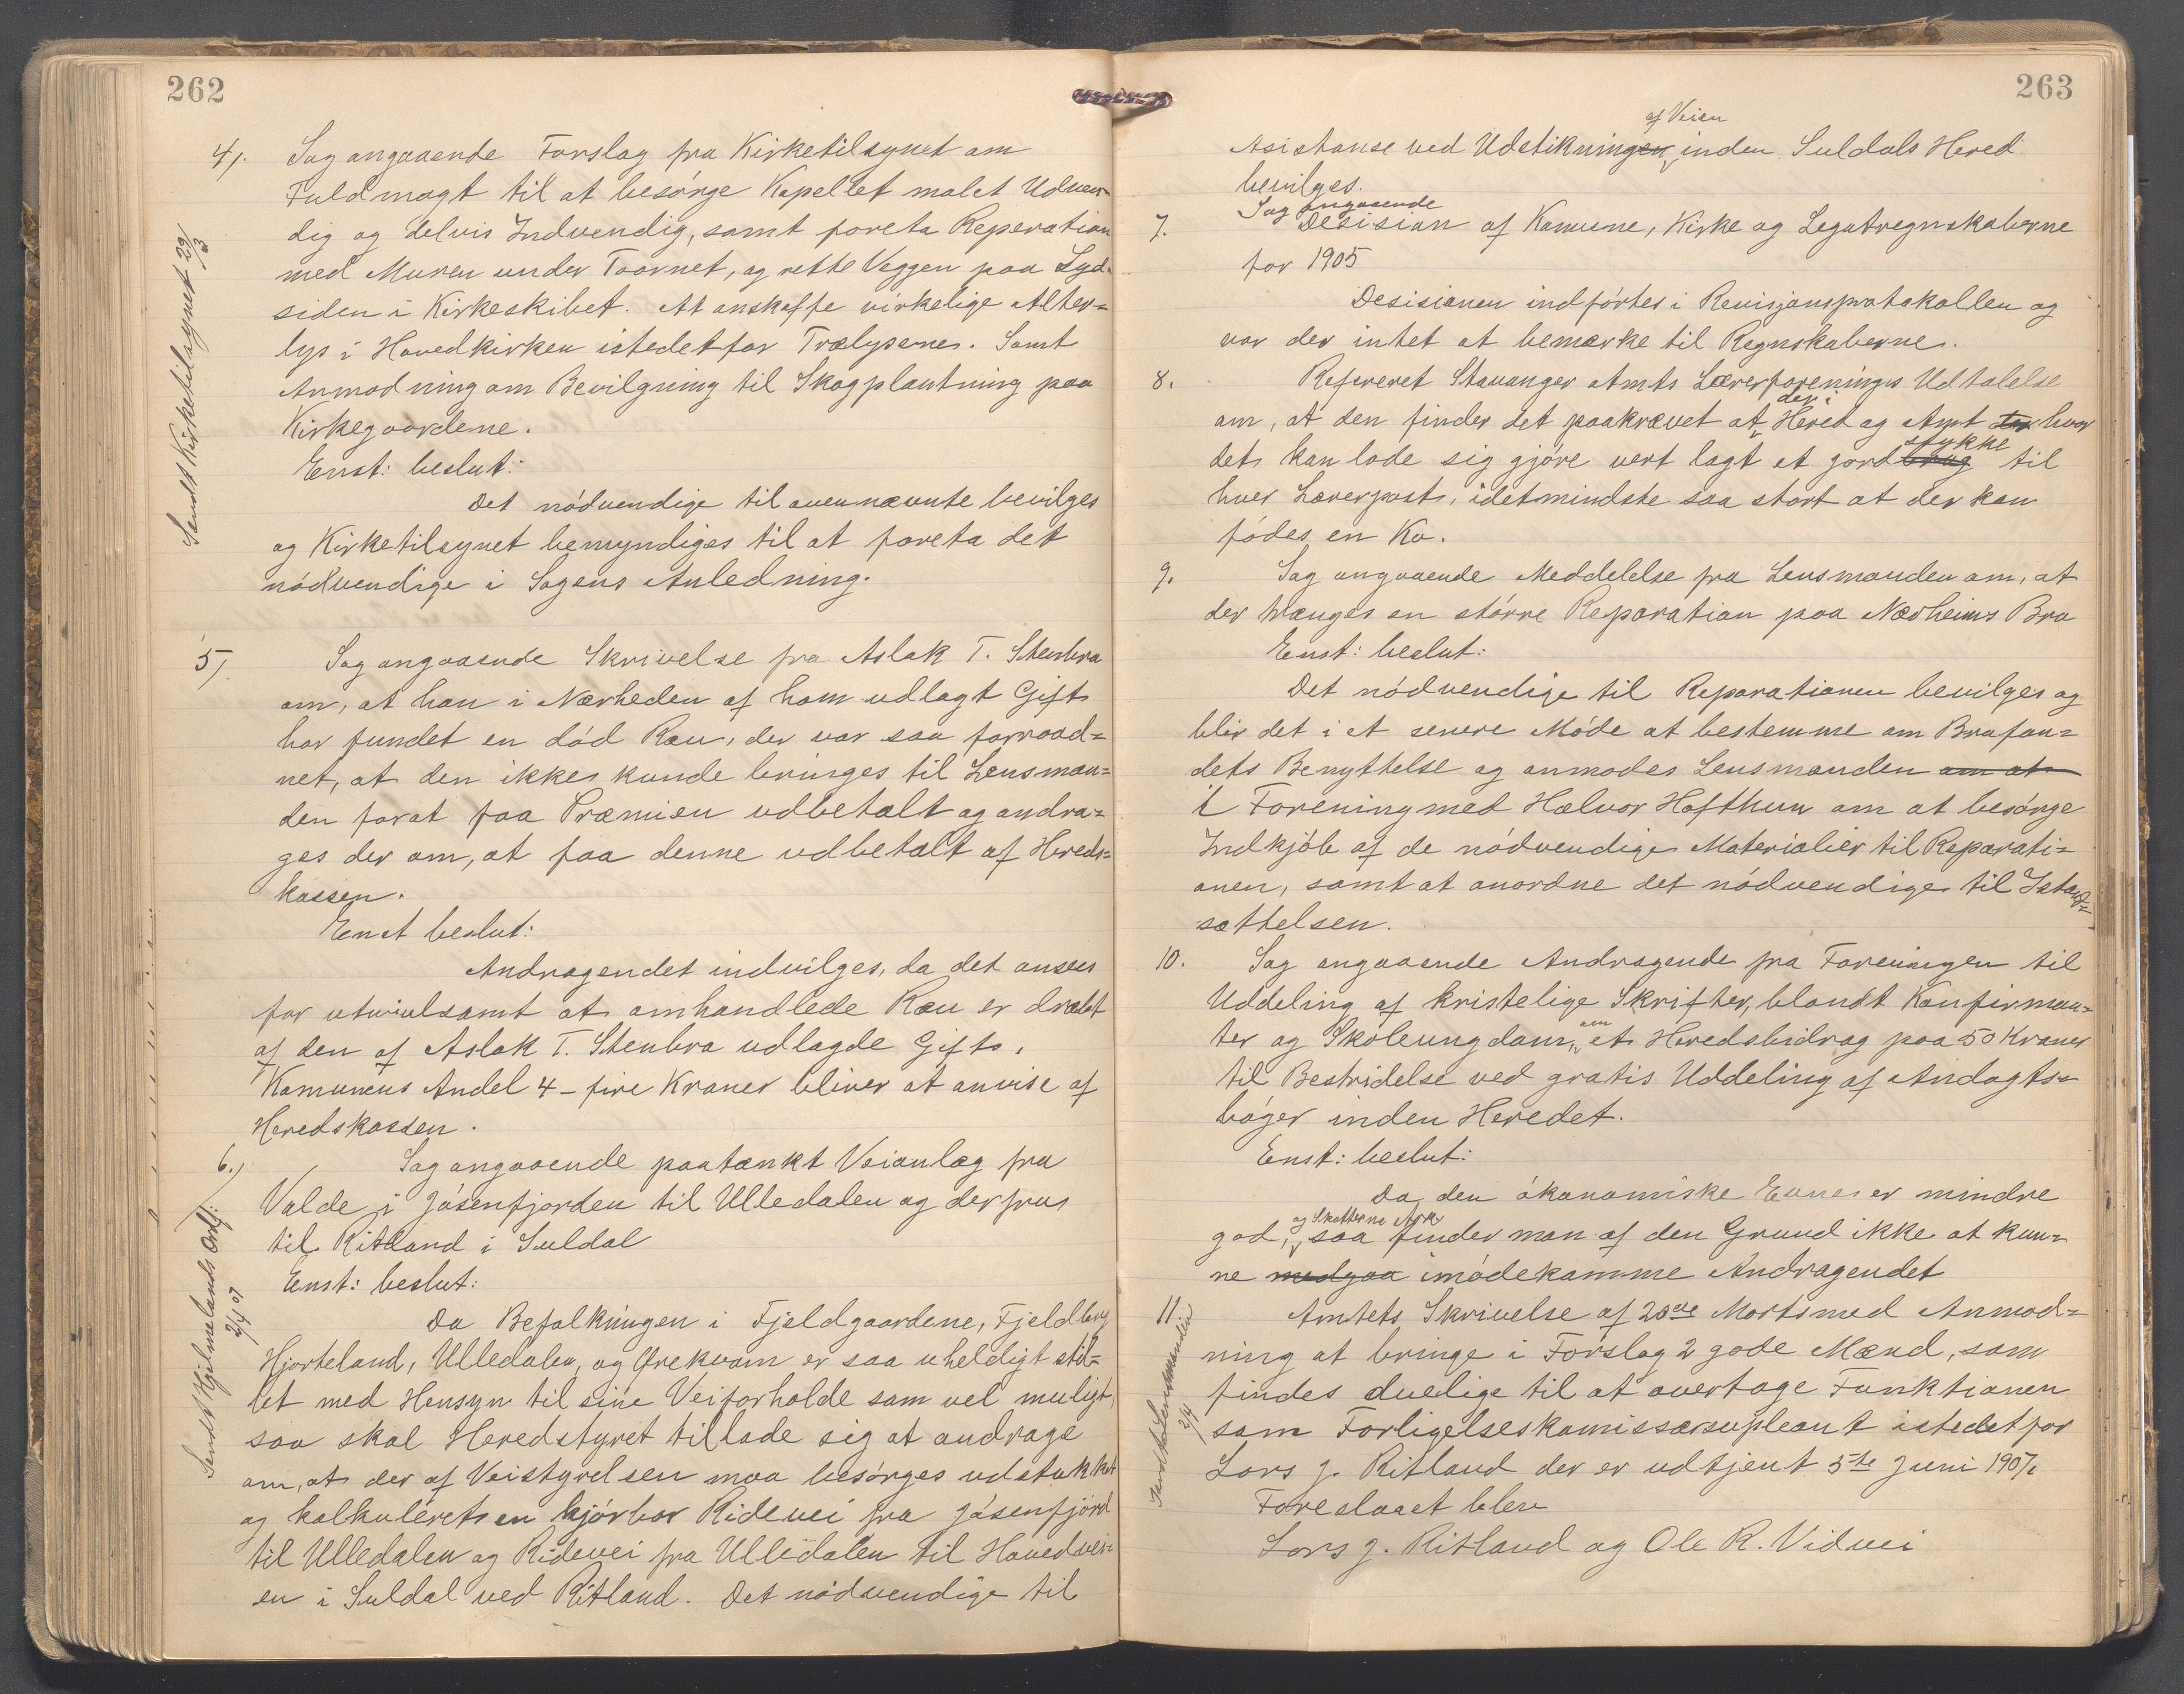 262
4). Sag angaaende Forslag fra Kirketilsynet om
Fuldmagt til at besörge Kapellet malet Udven-
dig og delvis Indvendig, samt foreta Reperation
med Muren under Taarnet, og rette Veggen paa Syd-
siden i Kirkeskibet. At anskaffe virkelige Alter-
lys i Hovedkirken istedetfor Trælysene. Samt
Anmodning om Bevilgning til Skogplantning paa
Kirkegaardene.
Enst: beslut:
Det nödvendige til ovennævnte bevilges
og Kirketilsynet bemyndiges til at foreta det
nödvendige i Sagens Anledning.
Sendt Kirketilsynet 29/3
5). Sag angaaende Skrivelse fra Aslak T. Stenbra
om, at han i Nærheden af ham udlagt Gift
har fundet en död Ræv, der var saa forraad-
net, at den ikke kunde bringes til Lensman-
den forat faa Præmien udbetalt og andra-
ges der om, at faa denne udbetalt af Hereds-
kassen.
Enst beslut:
Andragendet indvilges, da det ansees
for utvivlsomt at omhandlede Ræv er dræbt
af den af Aslak T. Stenbra udlagde Gift.
Kamunens Andel 4 - fire Kroner bliver at anvise af
Heredskassen.
6.) Sag angaaende paatænkt Veianlæg fra
Valde i Jösenfjorden til Ulledalen og derfra
til Ritland i Suldal
Enst: beslut:
Da Befalkningen i Fjeldgaardene, Fjeldberg
Hjorteland, Ulledalen, og Ørekvam er saa uheldigt stil-
let med Hensyn til sine Veiforholde som vel muligt,
saa skal Heredstyret tillade sig at andrage
om, at der af Veistyrelsen maa besörges udstukket
og kalkuleret en kjörbar Ridevei fra Jösenfjord
til Ulledalen og Ridevei fra Ulledalen til Hovedvei-
en i Suldal ved Ritland. Det nödvendige til
Sendt Hjelmelands Ordf: 2/4 07
263
af Veien
Asistanse ved Udstikningen, inden Suldals Hered
bevilges.
7. Sag angaaende
Desisian af Kamune, Kirke og Legatregnskaberne
for 1905
Desisianen indförtes i Revisjonspratakallen og
var der intet at bemærke til Regnskaberne.
8. Refereret Stavanger Amts Lærerforenings Udtalelse
der i
om, at den finder det paakrævet at Hered og Amt der hvor
stykke
det kan lade sig gjöre vert lagt et jordbrug til
hver Lærerpost, idetmindste saa stort at der kan
födes en Ko.
9. Sag angaaende Meddelelse fra Lensmanden om, at
der trænges en större Reparation paa Næsheims Bro
Enst: beslut:
Det nödvendige til Reparationen bevilges og
blir det i et senere Möde at bestemme om Brofon-
dets Benyttelse og anmodes Lensmanden om at
i Forening med Halvor Hofthun om at besörge
Indkjöb af de nödvendige Materialier til Reparati-
onen, samt at anordne det nödvendige til Istand-
sættelsen.
10. Sag angaaende Andragende fra Foreningen til
Uddeling af kristelige Skrifter, blandt Konfirman-
ter og Skoleungdom, om et Heredsbidrag paa 50 Kroner
til Bestridelse ved gratis Uddeling af Andagts-
böger inden Heredet.
Enst: beslut:
Da den ökonomiske Evne er mindre
og Skatterne
god, saa finder man af den Grund ikke at kun-
ne medgaa imödekomme Andragendet
11. Amtets Skrivelse af 20de Marts med Anmod-
ning at bringe i Forslag 2 gode Mænd, som
findes duelige til at overtage Funktionen
som Forligelseskomissærsupleant istedetfor
Lars J. Ritland der er udtjent 5te Juni 1907.
Foreslaaet blev
Lars J. Ritland og Ole R. Vidvei
Sendt Lensmanden 2/4